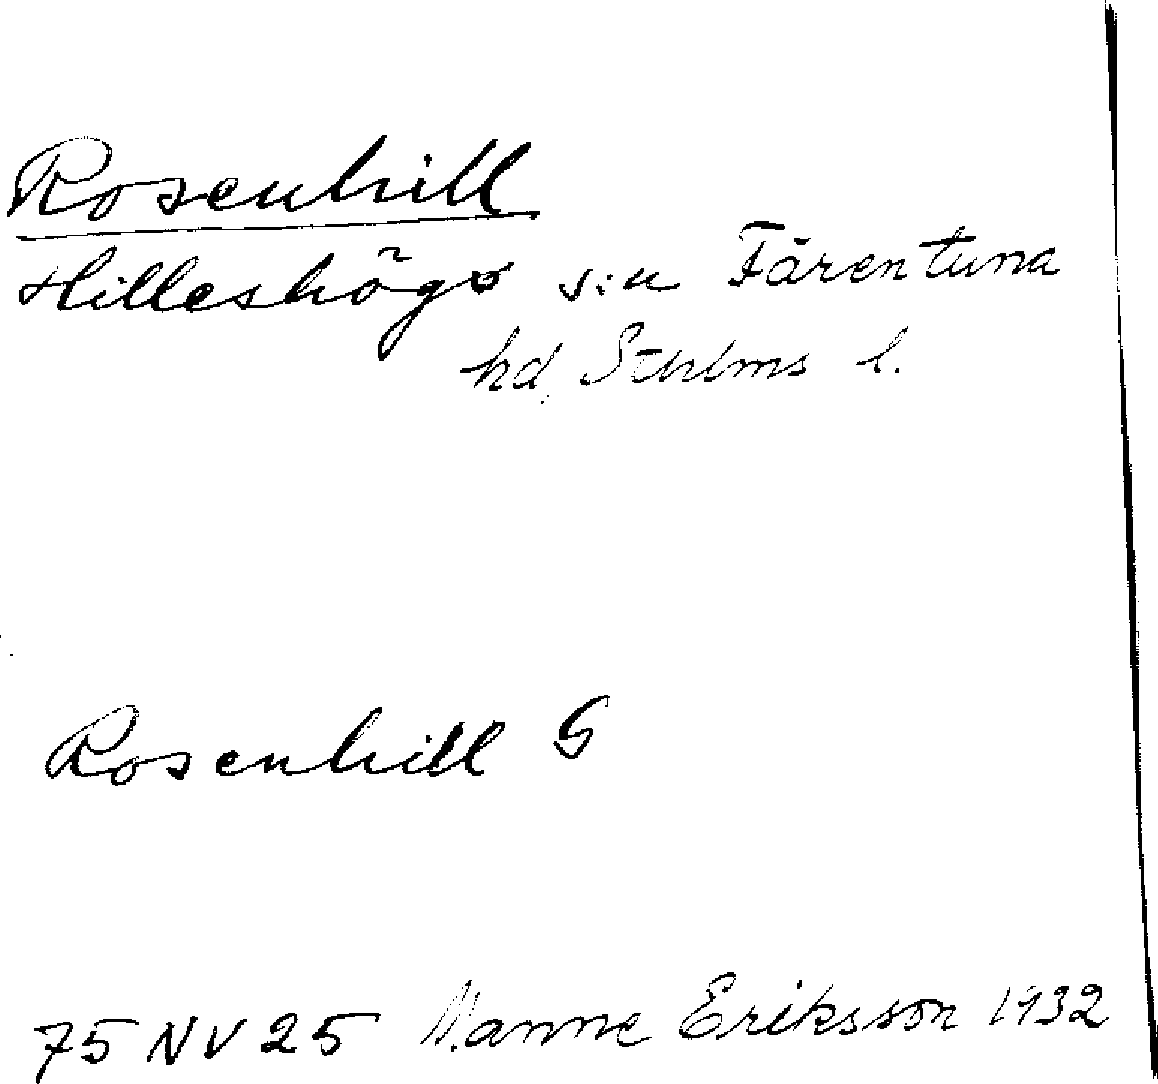 Rosenhill
Hilleshögs s:n Färentuna
hd, Sthlms l.
Rosenhill G
75 NV 25 Manne Eriksson 1932